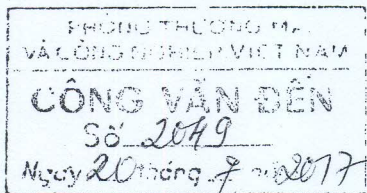 PHÒNG THƯƠNG MẠI
VÀ CÔNG NGHIỆP VIỆT NAM
CÔNG VĂN ĐẾN
Số 2049
Ngày 20 tháng 7 năm 2017